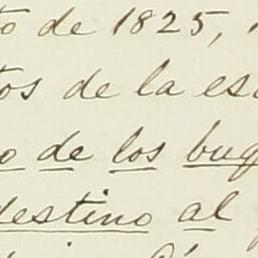 to de 1825,
tos de la es
o de los buq
destino al